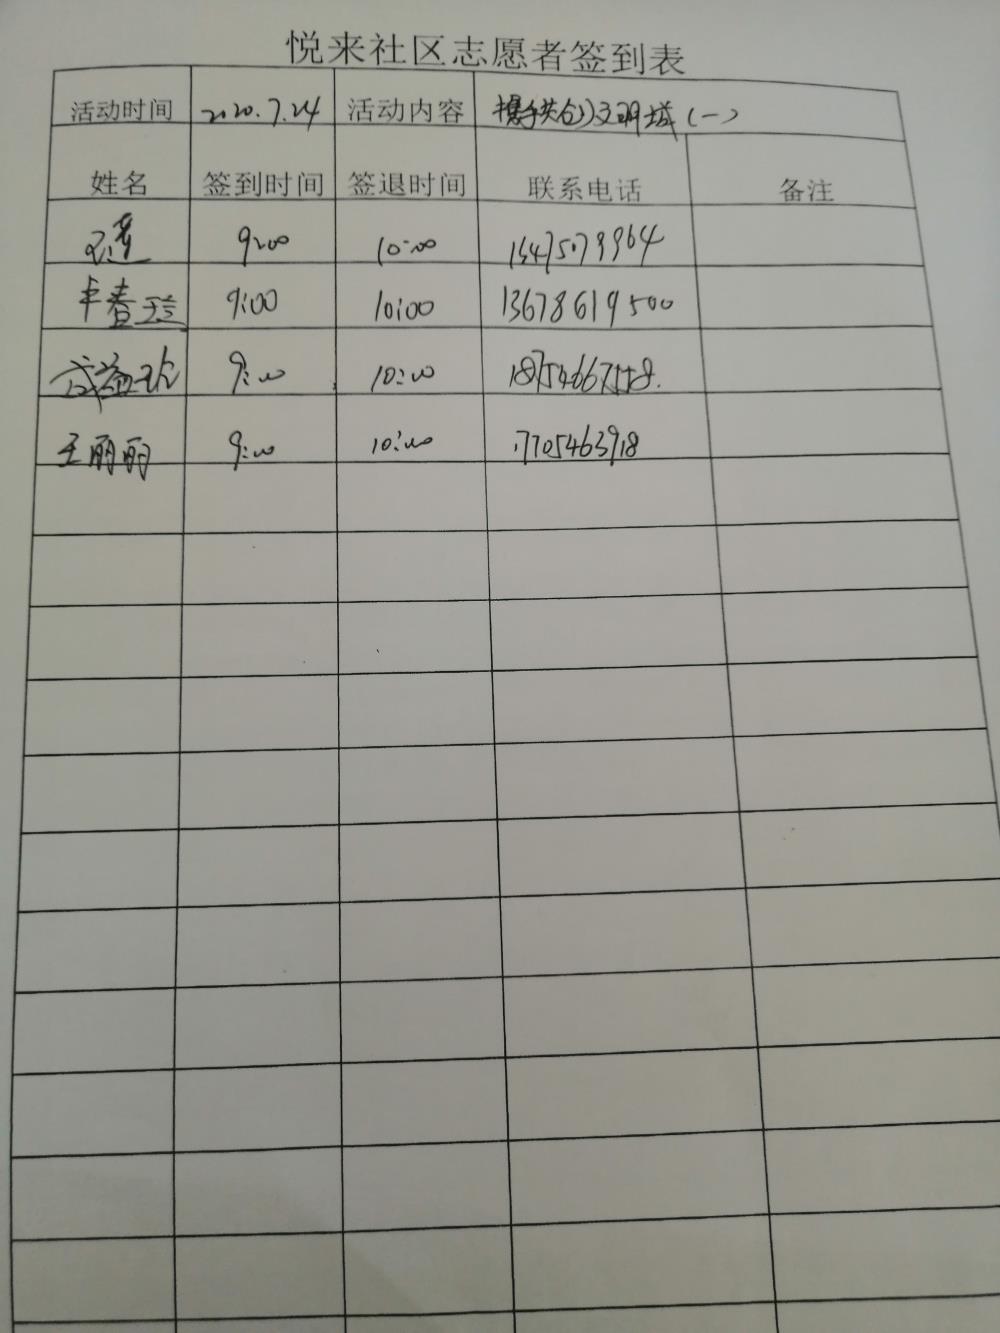 悦来社区志愿者签到表
活动时间 2020.7.24 活动内容 携手共创文明城(一)
姓名 签到时间 签退时间 联系电话 备注
9:00 10:00 15475079964
春 9:00 10:00 13678619500
成益 9:00 10:00
王丽丽 9:00 10:00 17705463918